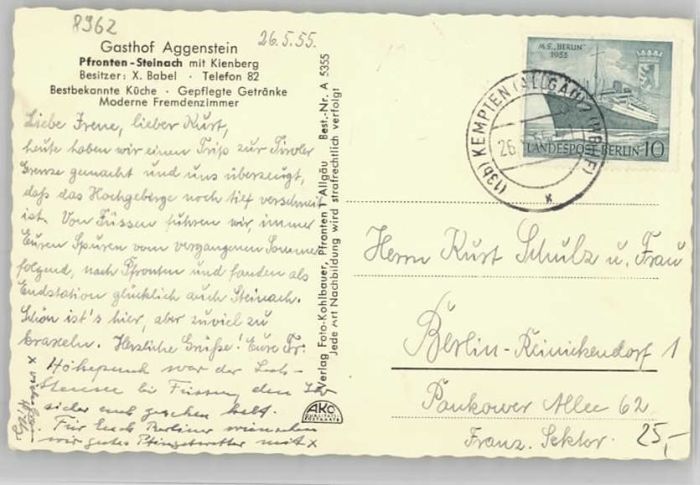 8962
26.5.55.
Gasthof Aggenstein
Pfronten-Steinach mit Kienberg
Besitzer: X. Babel · Telefon 82
Bestbekannte Küche · Gepflegte Getränke
Moderne Fremdenzimmer
Liebe Irene, lieber Kurt,
heute haben wir einen Trip zur Tiroler
Grenze gemacht und uns überzeugt,
daß das Hochgebirge noch tief verschneit
ist. Von Füssen fuhren wir immer
Euren Spuren vom vergangenen Sommer
folgend, nach Pfronten und fanden als
Endstation glücklich auch Steinach.
Schön ist's hier, aber zuviel zu
kraxeln. Herzliche Grüße! Eure
Höhepunkt war der
bei Füssen, den Ihr
sicher auch gesehen habt.
Für Euch Berliner wünschen
wir gutes Pfingstwetter mit x
Verlag Foto-Kohlbauer, Pfronten 1 Allgäu Best.-Nr. A 5355
Jede Art Nachbildung wird strafrechtlich verfolgt
AKO
M.S. „BERLIN"
1955
LANDESPOST BERLIN 10
(13b) KEMPTEN (ALLGÄU)
26.
Herrn Kurt Schulz u. Frau
Berlin-Reinickendorf 1
Pankower Allee 62
Franz. Sektor.
25,-